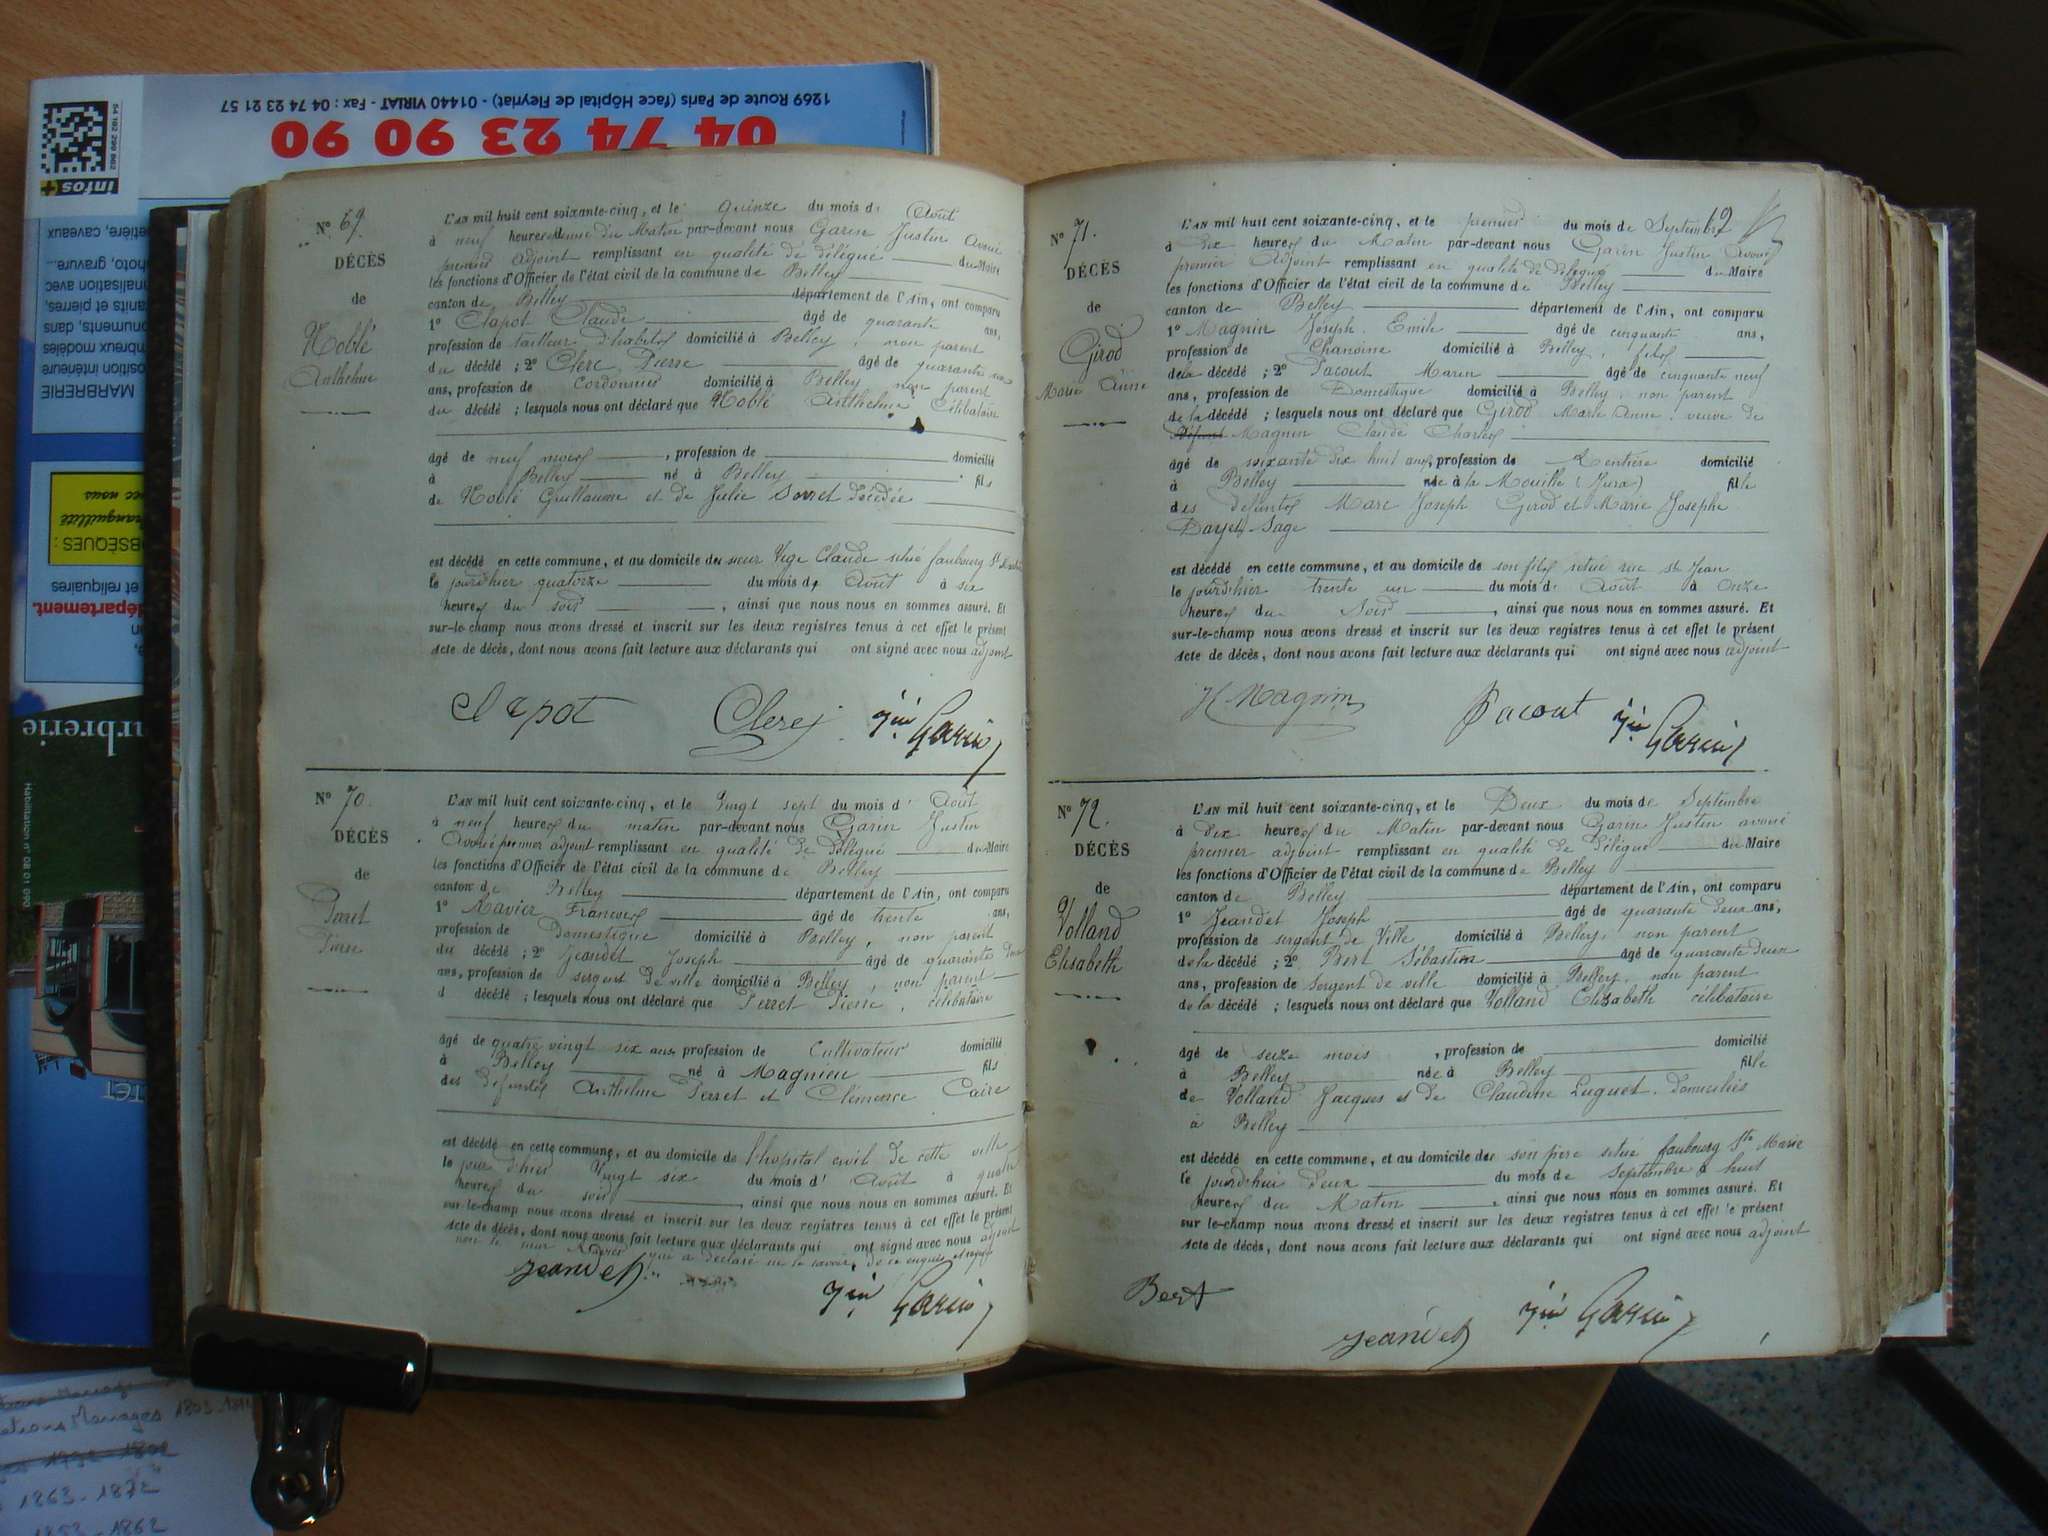 1269 Route de Paris (face Hôpital de Fleyriat) - 01440 VIRIAT - Fax : 04 74 23 21 57
04 74 23 90 90
infos+
MARBRERIE
OBSÈQUES :
département.
N° 69.
DÉCÈS
de
Noblé
Anthelme
L'AN mil huit cent soixante-cinq, et le quinze du mois d' Août
à neuf heures du Matin par-devant nous Garin Justin Avoué
premier adjoint remplissant en qualité de Délégué du Maire
les fonctions d'Officier de l'état civil de la commune de Belley
canton de Belley département de l'Ain, ont comparu
1° Clapot Claude âgé de quarante ans,
profession de tailleur d'habits domicilié à Belley, non parent
du décédé ; 2° Clerc Pierre âgé de quarante
ans, profession de Cordonnier domicilié à Belley non parent
du décédé ; lesquels nous ont déclaré que Noblé Anthelme Célibataire
âgé de neuf mois, profession de domicilié
à Belley né à Belley fils
de Noblé Guillaume et de Julie Sorret décédée
est décédé en cette commune, et au domicile du sieur Vege Claude situé faubourg St
le jour d'hier quatorze du mois d' Août à six
heures du soir, ainsi que nous nous en sommes assuré. Et
sur-le-champ nous avons dressé et inscrit sur les deux registres tenus à cet effet le présent
Acte de décès, dont nous avons fait lecture aux déclarants qui ont signé avec nous adjoint
Clapot Clerc Jin Garin
N° 70.
DÉCÈS
de
Perret
Pierre
L'AN mil huit cent soixante-cinq, et le Vingt sept du mois d' Août
à neuf heures du matin par-devant nous Garin Justin
Avoué premier adjoint remplissant en qualité de Délégué du Maire
les fonctions d'Officier de l'état civil de la commune de Belley
canton de Belley département de l'Ain, ont comparu
1° Xavier François âgé de trente ans,
profession de Domestique domicilié à Belley, non parent
du décédé ; 2° Jeandet Joseph âgé de quarante deux
ans, profession de sergent de ville domicilié à Belley, non parent
d décédé ; lesquels nous ont déclaré que Perret Pierre, célibataire
âgé de quatre vingt six ans profession de Cultivateur domicilié
à Belley né à Magnieu fils
des défunts Anthelme Perret et Clémence Caire
est décédé en cette commune, et au domicile de l'hopital civil de cette ville
le jour d'hier Vingt six du mois d' Août à quatre
heures du soir, ainsi que nous nous en sommes assuré. Et
sur-le-champ nous avons dressé et inscrit sur les deux registres tenus à cet effet le présent
Acte de décès, dont nous avons fait lecture aux déclarants qui ont signé avec nous adjoint
non le sieur Xavier qui a déclaré ne le savoir de ce enquis et requis
Jeandet Jin Garin
19
N° 71.
DÉCÈS
de
Girod
Marie Anne
L'AN mil huit cent soixante-cinq, et le premier du mois de Septembre
à dix heures du Matin par-devant nous Garin Justin Avoué
premier Adjoint remplissant en qualité de délégué du Maire
les fonctions d'Officier de l'état civil de la commune de Belley
canton de Belley département de l'Ain, ont comparu
1° Magnin Joseph Emile âgé de cinquante ans,
profession de Chanoine domicilié à Belley, fils
de la décédé ; 2° Pacout Marin âgé de cinquante neuf
ans, profession de Domestique domicilié à Belley, non parent
de la décédé ; lesquels nous ont déclaré que Girod Marie Anne, veuve de
Magnin Claude Charles
âgé de soixante dix huit ans, profession de Rentière domicilié
à Belley née à la Mouille (Jura) fille
des défunts Marc Joseph Girod et Marie Josephe
Dayet Sage
est décédé en cette commune, et au domicile de son fils situé rue St Jean
le jour d'hier trente un du mois d' Août à Onze
heures du Soir, ainsi que nous nous en sommes assuré. Et
sur-le-champ nous avons dressé et inscrit sur les deux registres tenus à cet effet le présent
Acte de décès, dont nous avons fait lecture aux déclarants qui ont signé avec nous adjoint
Magnin Pacout Jin Garin
N° 72.
DÉCÈS
de
Volland
Elisabeth
L'AN mil huit cent soixante-cinq, et le Deux du mois de Septembre
à dix heures du Matin par-devant nous Garin Justin avoué
premier adjoint remplissant en qualité de Délégué du Maire
les fonctions d'Officier de l'état civil de la commune de Belley
canton de Belley département de l'Ain, ont comparu
1° Jeandet Joseph âgé de quarante deux ans,
profession de sergent de Ville domicilié à Belley, non parent
de la décédé ; 2° Bert Sébastien âgé de quarante deux
ans, profession de Sergent de ville domicilié à Belley, non parent
de la décédé ; lesquels nous ont déclaré que Volland Elisabeth célibataire
âgé de seize mois, profession de domicilié
à Belley née à Belley fille
de Volland Jacques et de Claudine Luguet. Domiciliés
à Belley
est décédé en cette commune, et au domicile de son père situé faubourg Ste Marie
le jourd'hui deux du mois de Septembre à huit
heures du Matin, ainsi que nous nous en sommes assuré. Et
sur-le-champ nous avons dressé et inscrit sur les deux registres tenus à cet effet le présent
Acte de décès, dont nous avons fait lecture aux déclarants qui ont signé avec nous adjoint
Bert Jeandet Jin Garin
Mariages 1803-
1863-1872
1853-1862